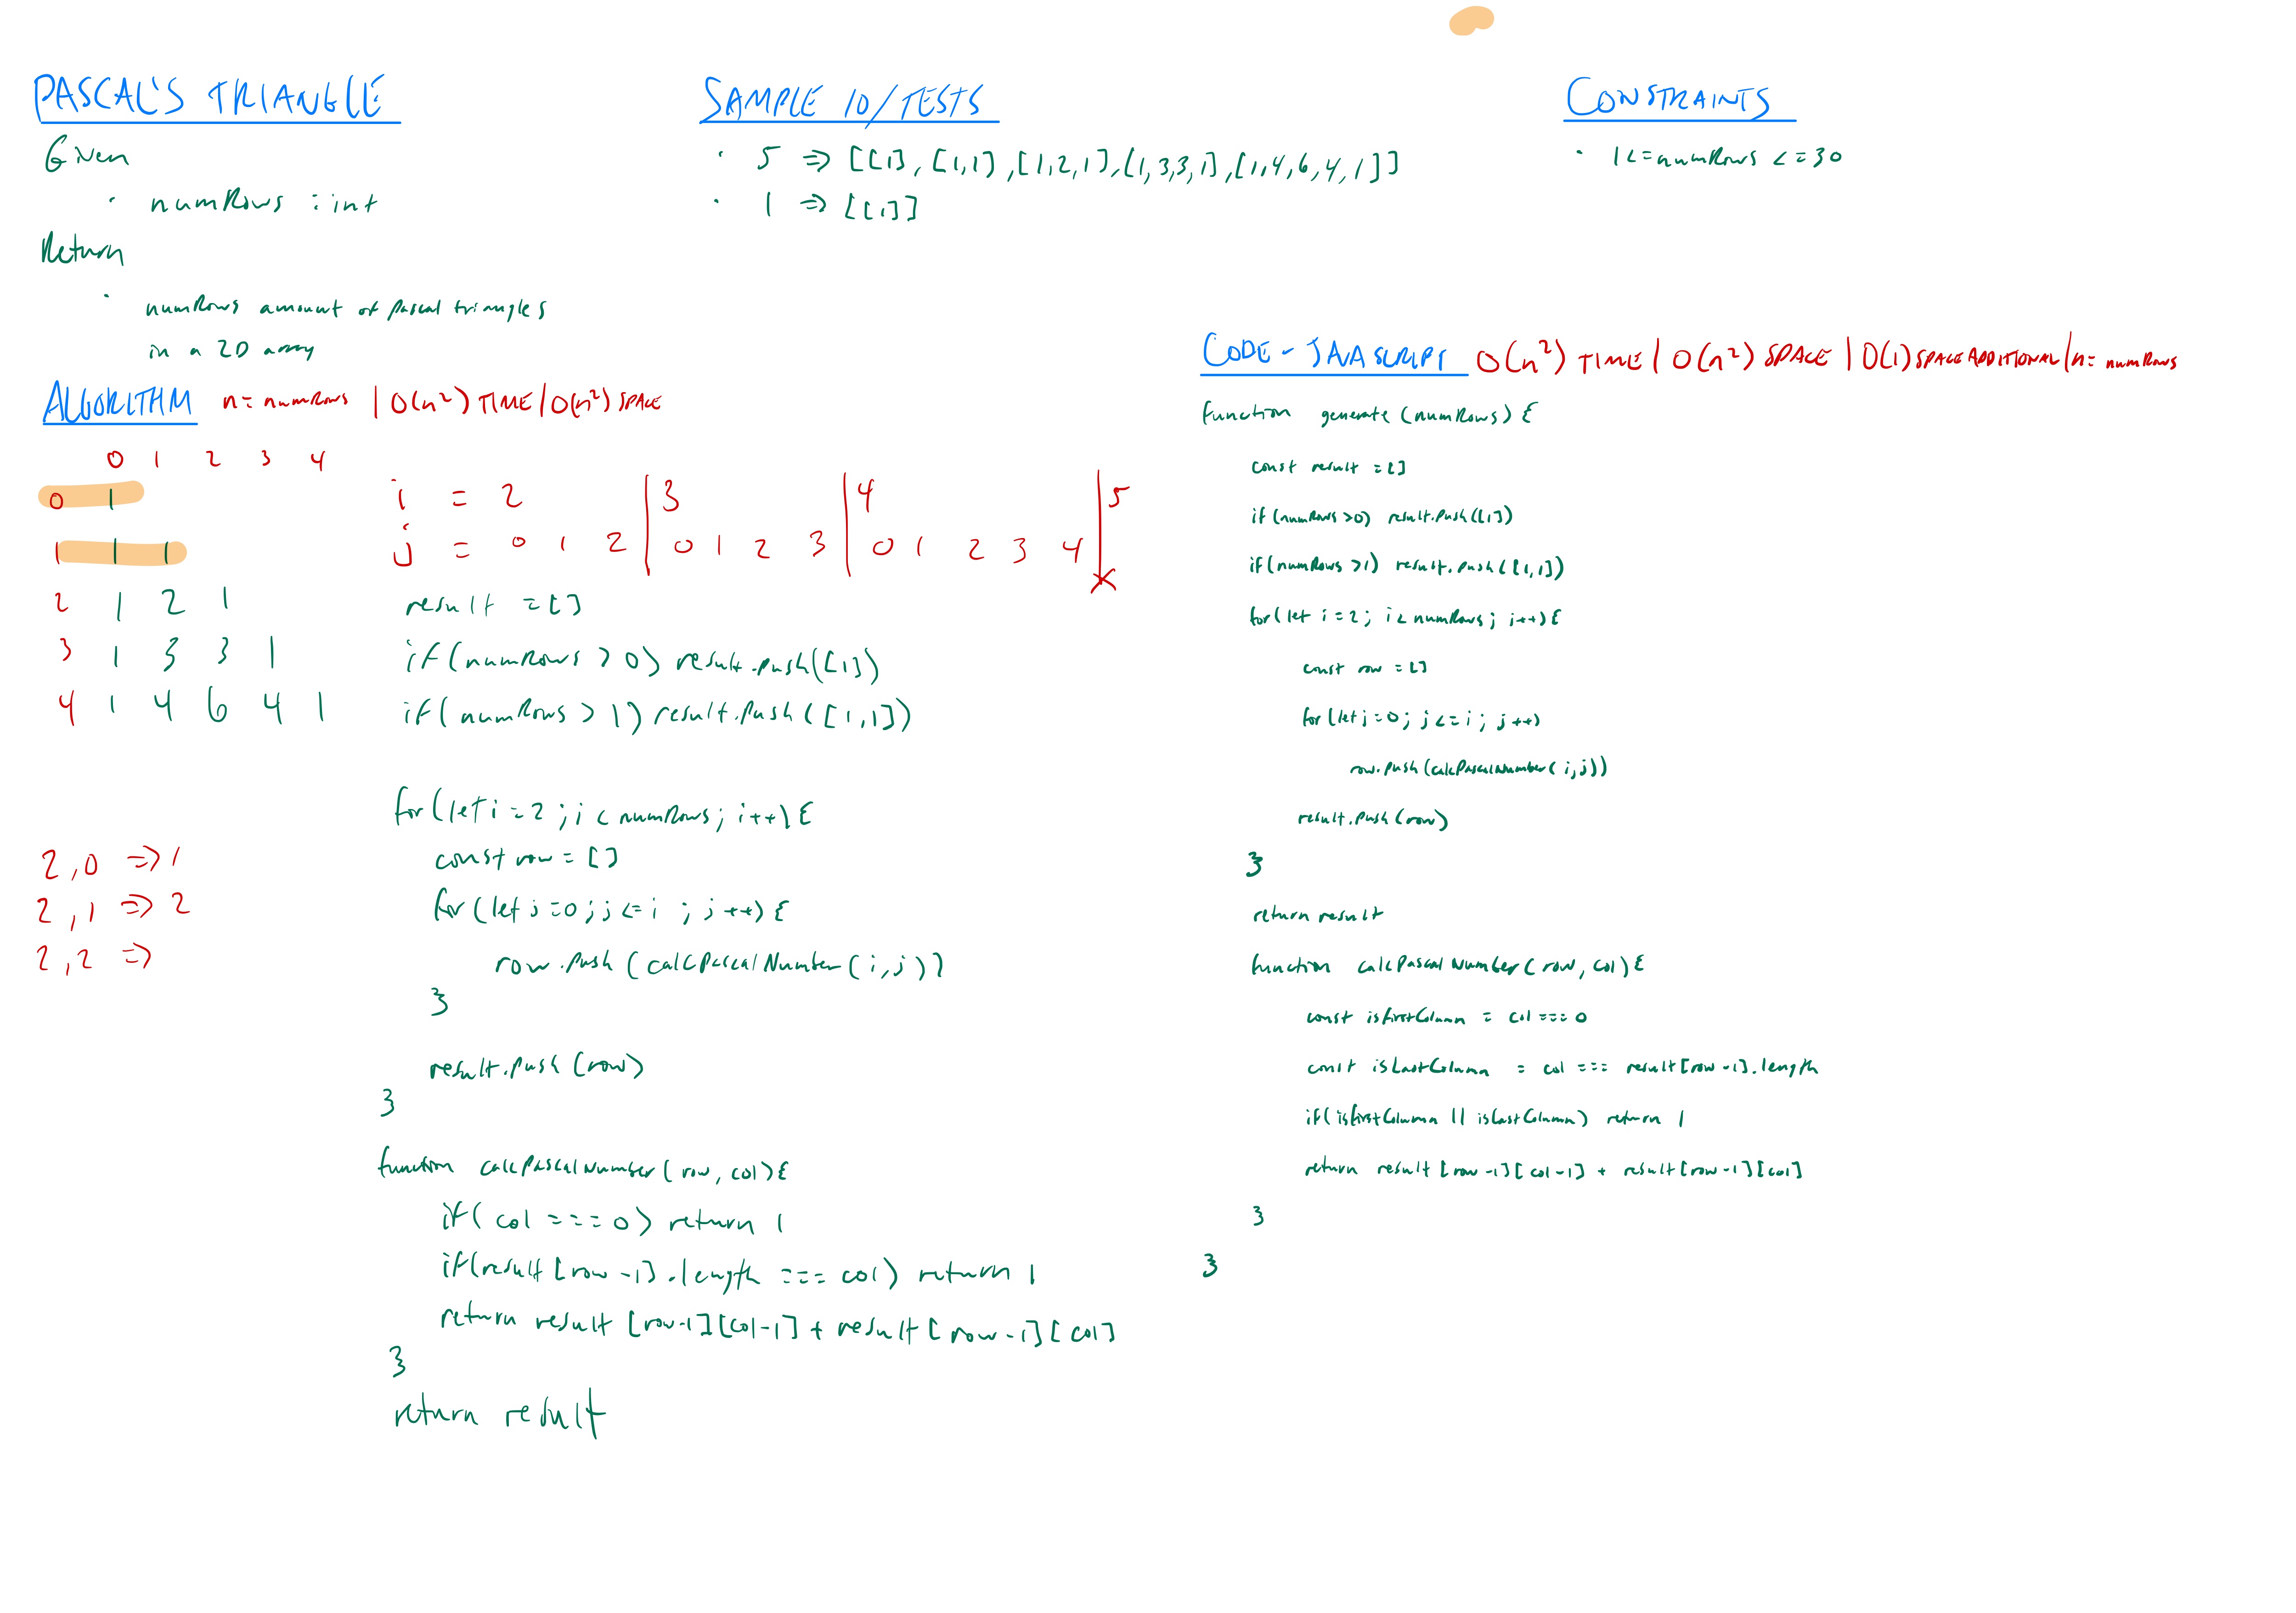 PASCAL'S TRIANGLE
Given
· numRows : int
Return
· numRows amount of pascal triangles
in a 2D array
SAMPLE IO/TESTS
· 5 => [[1],[1,1],[1,2,1],[1,3,3,1],[1,4,6,4,1]]
· 1 => [[1]]
CONSTRAINTS
· 1<=numRows <=30
ALGORITHM n= numRows | O(n²) TIME/O(n²) SPACE
0 1 2 3 4
0 1
1 1 1
2 1 2 1
3 1 3 3 1
4 1 4 6 4 1
2,0 => 1
2,1 => 2
2,2 =>
i = 2 | 3 | 4 | 5
j = 0 1 2 | 0 1 2 3 | 0 1 2 3 4 | X
result = []
if(numRows > 0) result.push([1])
if(numRows > 1) result.push([1,1])
for(let i=2; i < numRows; i++){
const row = []
for(let j=0; j<=i ; j++){
row.push(calcPascalNumber(i,j))
}
result.push(row)
}
function calcPascalNumber(row, col){
if(col === 0) return 1
if(result[row-1].length === col) return 1
return result[row-1][col-1] + result[row-1][col]
}
return result
CODE - JAVASCRIPT O(n²) TIME | O(n²) SPACE | O(1) SPACE ADDITIONAL | n= numRows
function generate(numRows){
const result = []
if(numRows >0) result.push([1])
if(numRows >1) result.push([1,1])
for(let i=2; i< numRows; i++){
const row = []
for(let j=0; j<=i; j++)
row.push(calcPascalNumber(i,j))
result.push(row)
}
return result
function calcPascalNumber(row, col){
const isFirstColumn = col === 0
const isLastColumn = col === result[row-1].length
if(isFirstColumn || isLastColumn) return 1
return result[row-1][col-1] + result[row-1][col]
}
}